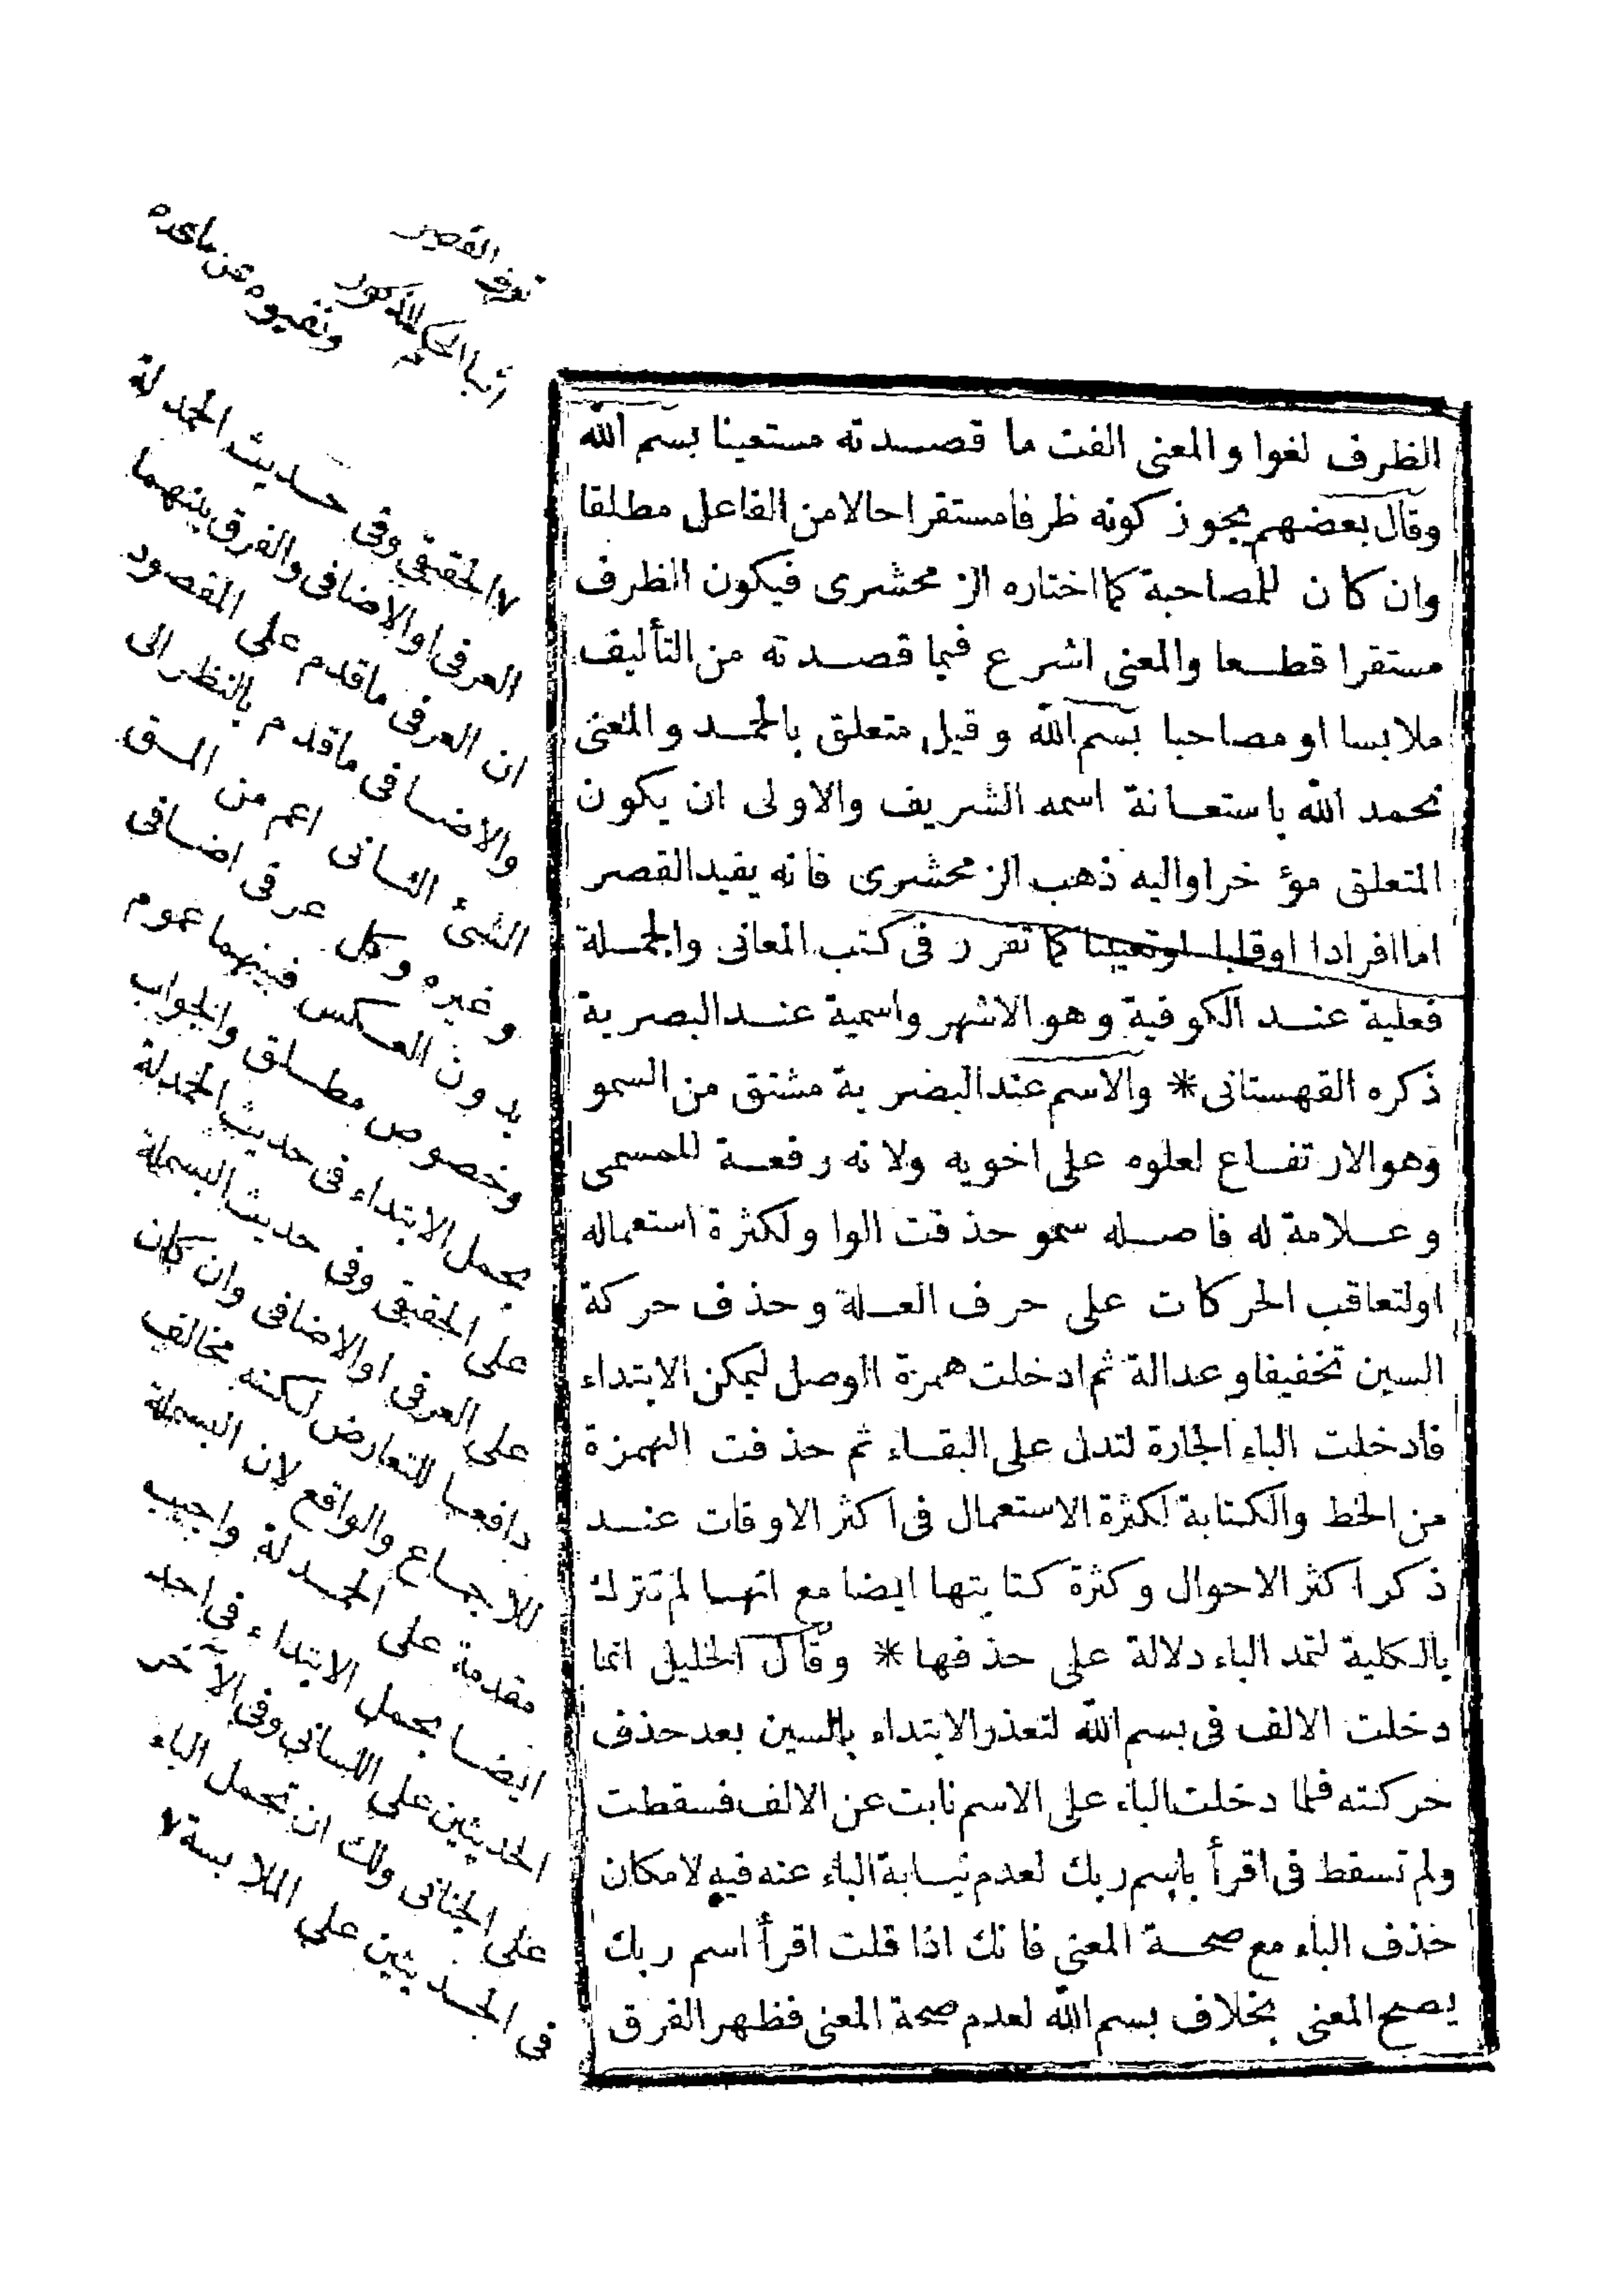 الظرف لغوا والمعنى الفت ما قصدته مستعينا بسم الله
وقال بعضهم يجوز كونه ظرفا مستقرا حالا من الفاعل مطلقا
وان كان للمصاحبة كما اختاره الزمحشرى فيكون الظرف
مستقرا قطعا والمعنى اشرع فيما قصدته من التأليف
ملابسا او مصاحبا بسم الله وقيل متعلق بالحمد والمعنى
نحمد الله باستعانة اسمه الشريف والاولى ان يكون
المتعلق مؤخرا واليه ذهب الزمحشرى فانه يفيد القصر
اما افرادا اوقلبا اوتعيينا كما تقرر فى كتب المعانى والجملة
فعلية عند الكوفية وهو الاشهر واسمية عند البصرية
ذكره القهستانى * والاسم عند البصرية مشتق من السمو
وهو الارتفاع لعلوه على اخويه ولانه رفعة للمسمى
وعلامة له فاصله سمو حذفت الواو لكثرة استعماله
اولتعاقب الحركات على حرف العلة وحذف حركة
السين تخفيفا وعدالة ثم ادخلت همزة الوصل ليمكن الابتداء
فادخلت الباء الجارة لتدل على البقاء ثم حذفت الهمزة
من الخط والكتابة لكثرة الاستعمال فى اكثر الاوقات عند
ذكر اكثر الاحوال وكثرة كتابتها ايضا مع انها لم تترك
بالكلية لتمد الباء دلالة على حذفها * وقال الخليل انما
دخلت الالف فى بسم الله لتعذر الابتداء بالسين بعد حذف
حركته فلما دخلت الباء على الاسم نابت عن الالف فسقطت
ولم تسقط فى اقرأ باسم ربك لعدم نيابة الباء عنه فيه لامكان
حذف الباء مع صحة المعنى فانك اذا قلت اقرأ اسم ربك
يصح المعنى بخلاف بسم الله لعدم صحة المعنى فظهر الفرق
تعريف القصر
الحكم للمذكور
ونفيه عن ما عداه
٧ الحقيقى وفى حديث الحمدلة
العرفى او الاضافى والفرق بينهما
ان العرفى ما قدم على المقصود
والاضافى ما قدم بالنظر الى
الشئ الثانى اعم من
وغيره وكل عرفى اضافى
بدون العكس فبينهما عموم
وخصوص مطلق والجواب
بحمل الابتداء فى حديث الحمدلة
على الحقيقى وفى حديث البسملة
على العرفى او الاضافى وان كان
دافعا للتعارض لكنه مخالف
للاجماع والواقع لان البسملة
مقدمة على الحمدلة واجيب
ايضا بحمل الابتداء فى احد
الحديثين على اللسانى وفى الآخر
على الجنانى ولك ان تحمل الباء
فى الحديثين على الملابسة ٧